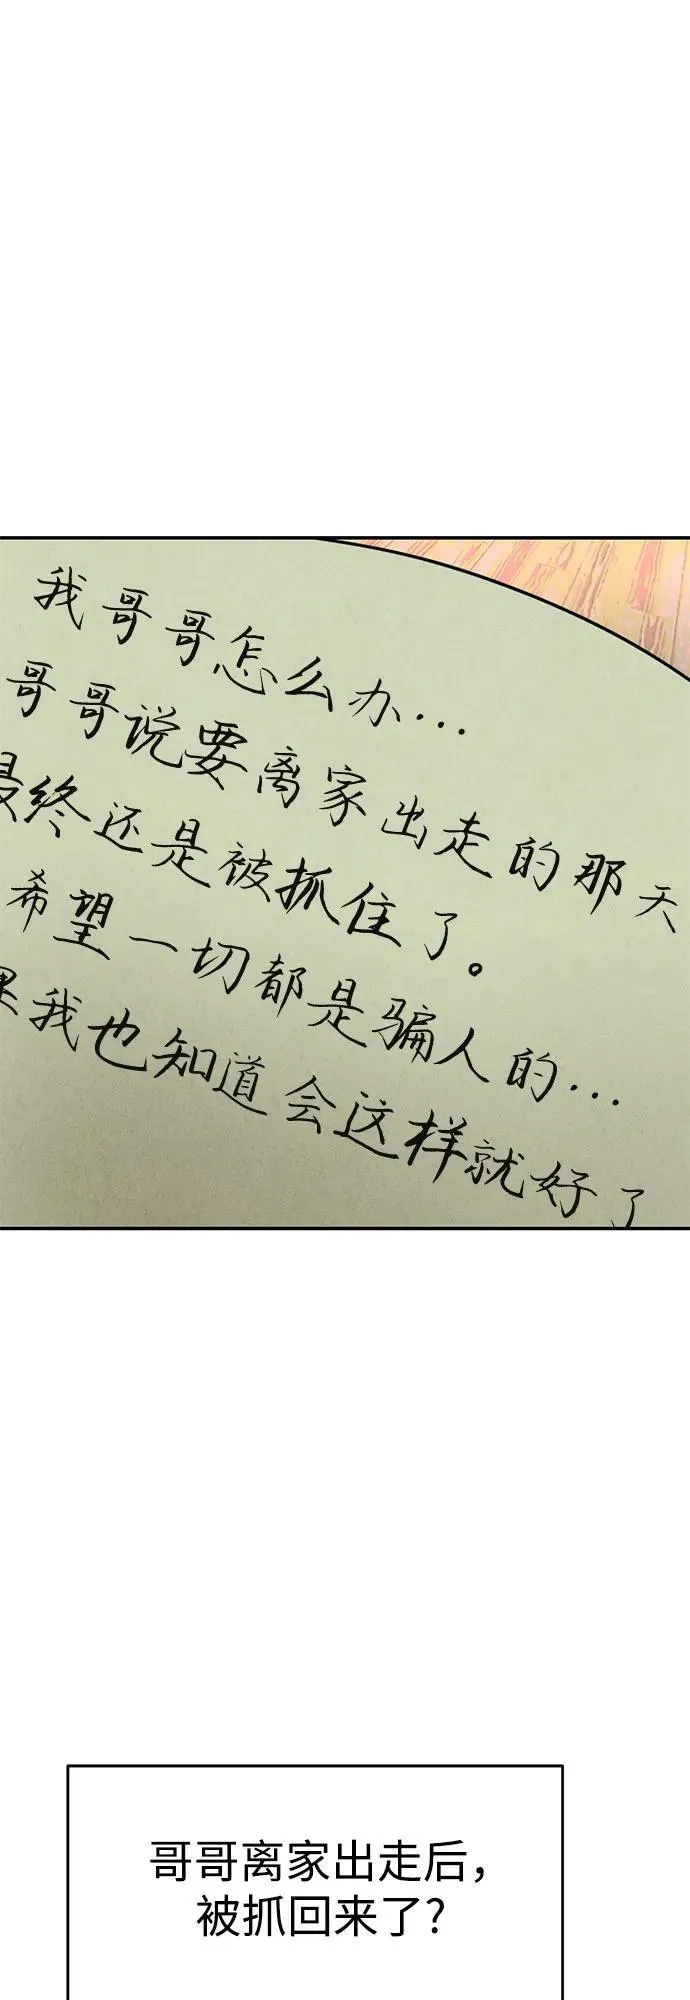 我哥哥怎么办...
哥哥说要离家出走的那天
最终还是被抓住了。
希望一切都是骗人的...
果我也知道会这样就好了
哥哥离家出走后，
被抓回来了?